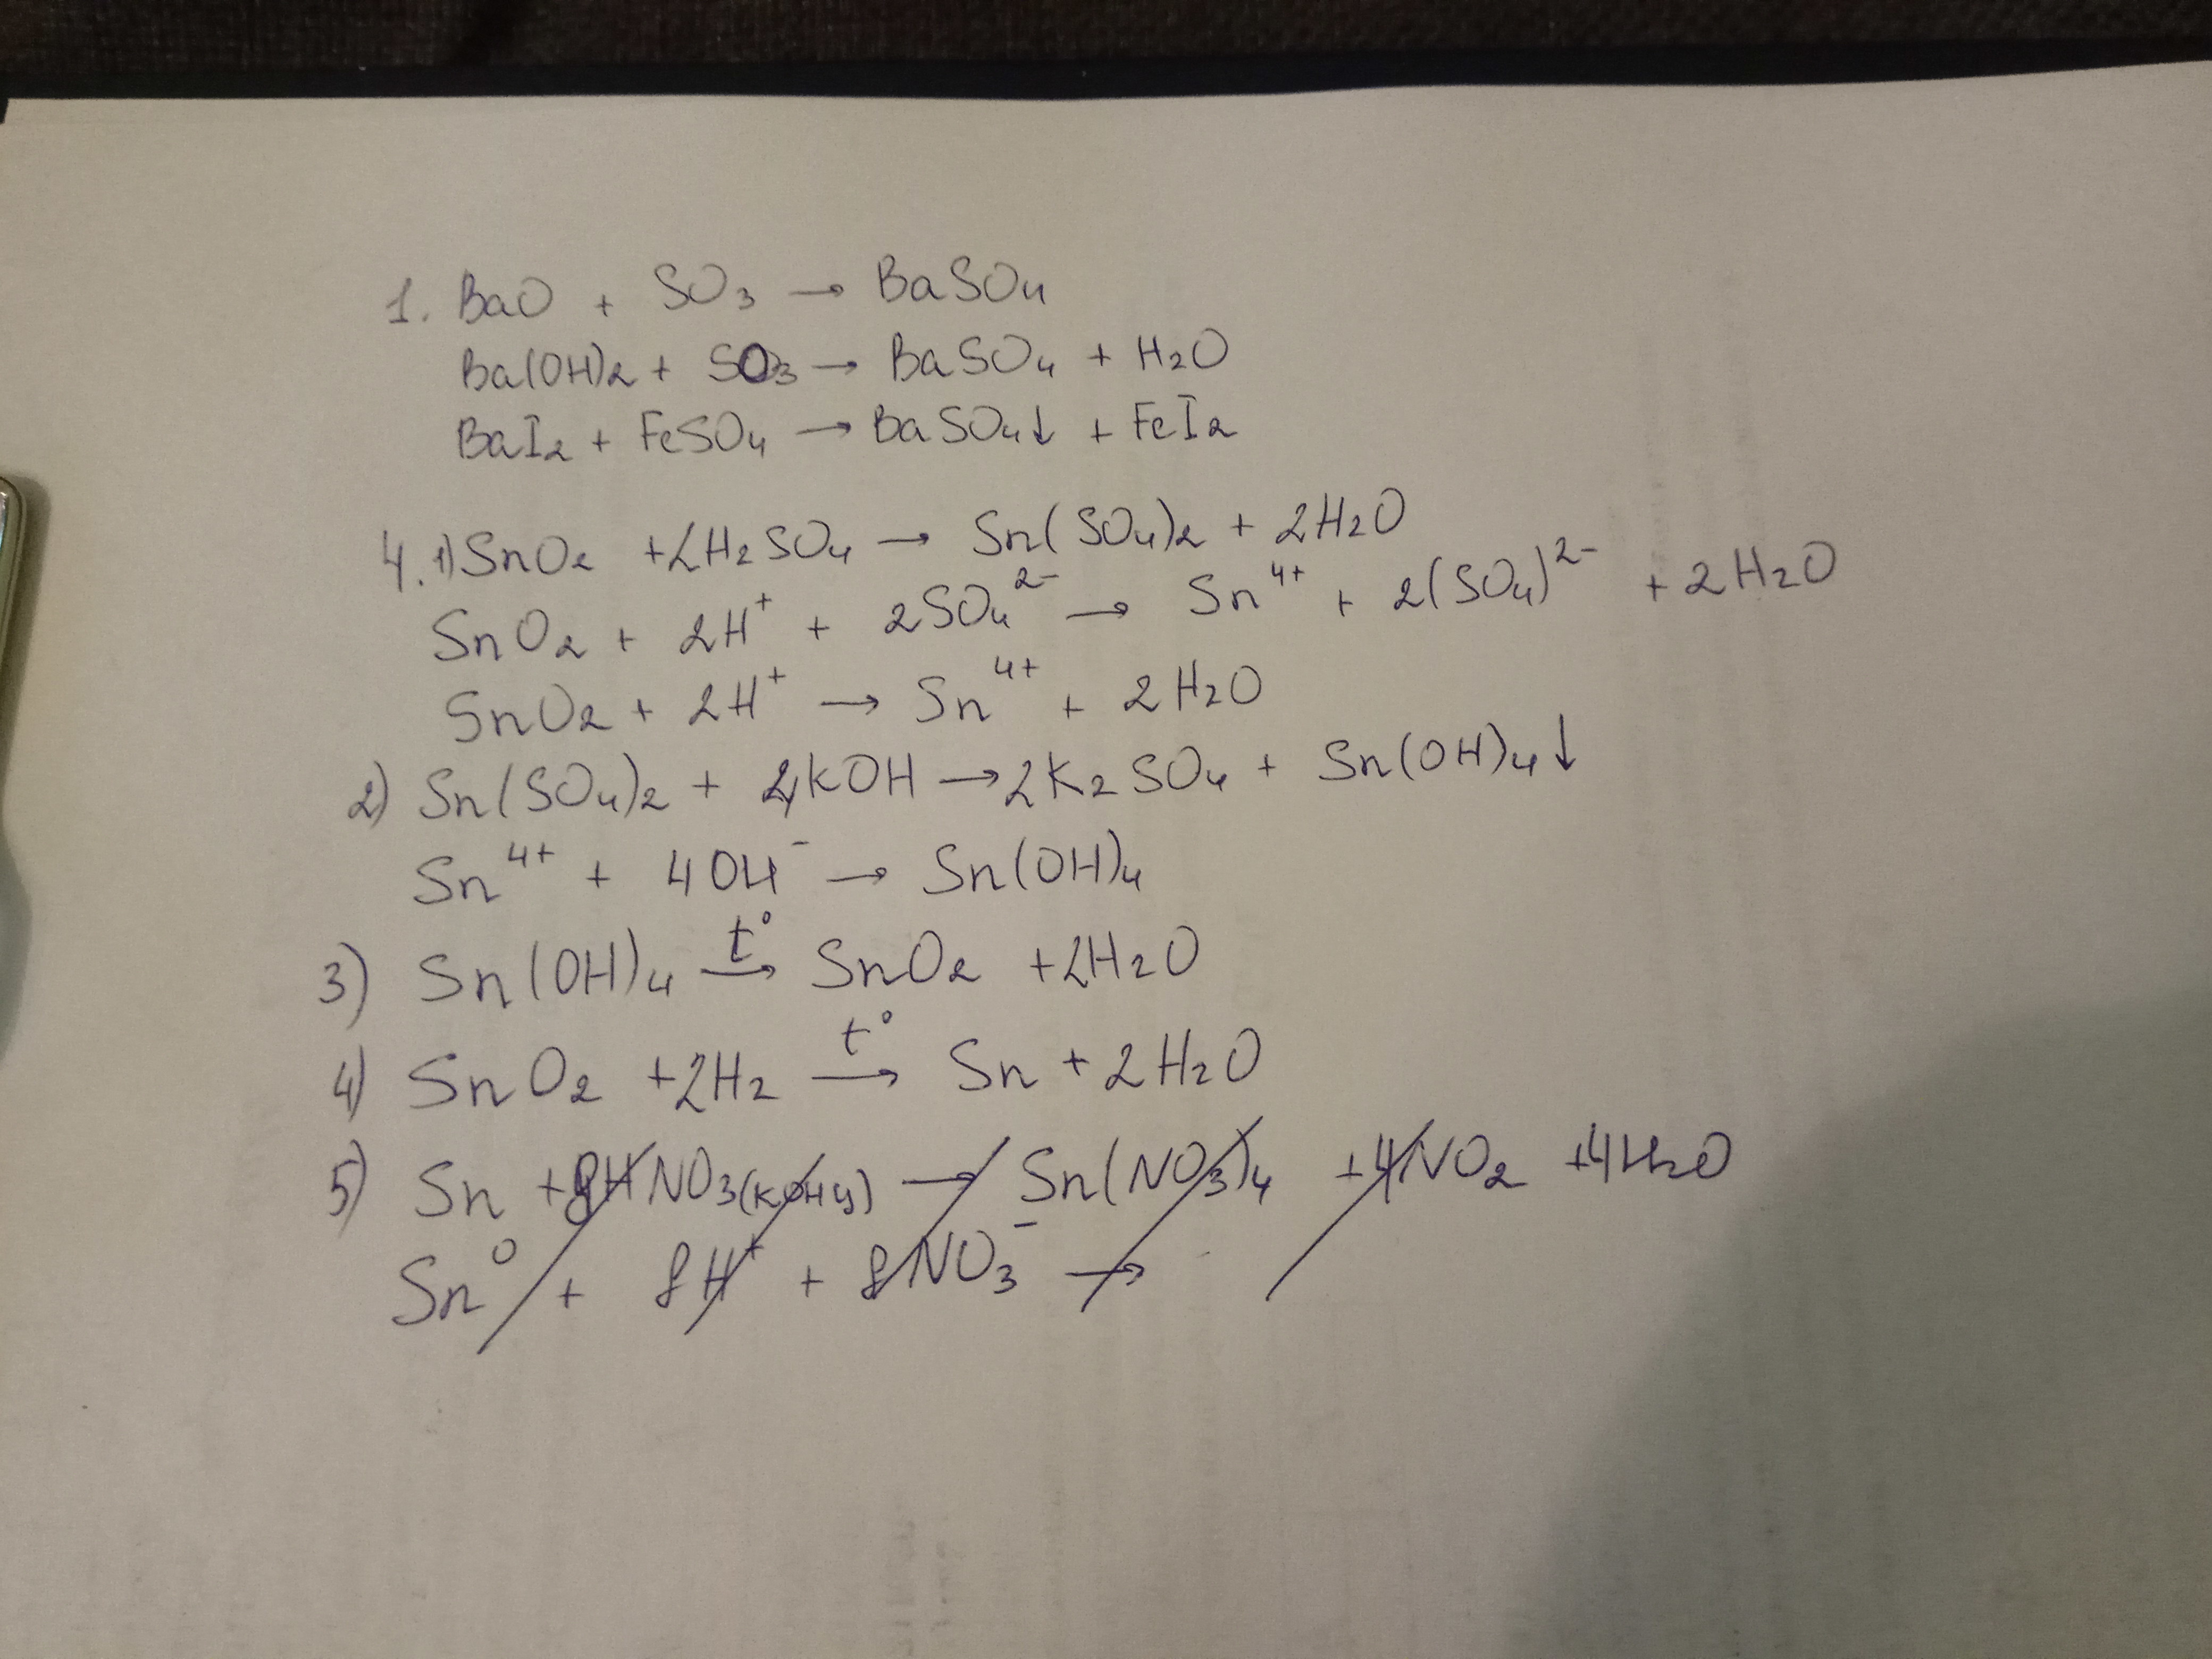 1. BaO + SO₃ → BaSO₄
Ba(OH)₂ + SO₃ → BaSO₄ + H₂O
BaI₂ + FeSO₄ → BaSO₄↓ + FeI₂
4. 1) SnO₂ + 2H₂SO₄ → Sn(SO₄)₂ + 2H₂O
SnO₂ + 2H⁺ + 2SO₄²⁻ → Sn⁴⁺ + 2(SO₄)²⁻ + 2H₂O
SnO₂ + 2H⁺ → Sn⁴⁺ + 2H₂O
2) Sn(SO₄)₂ + 4KOH → 2K₂SO₄ + Sn(OH)₄↓
Sn⁴⁺ + 4OH⁻ → Sn(OH)₄
3) Sn(OH)₄ t° → SnO₂ + 2H₂O
4) SnO₂ + 2H₂ t° → Sn + 2H₂O
5) Sn + 8HNO₃(конц) → Sn(NO₃)₄ + 4NO₂ + 4H₂O
Sn⁰ + 8H⁺ + 8NO₃⁻ →